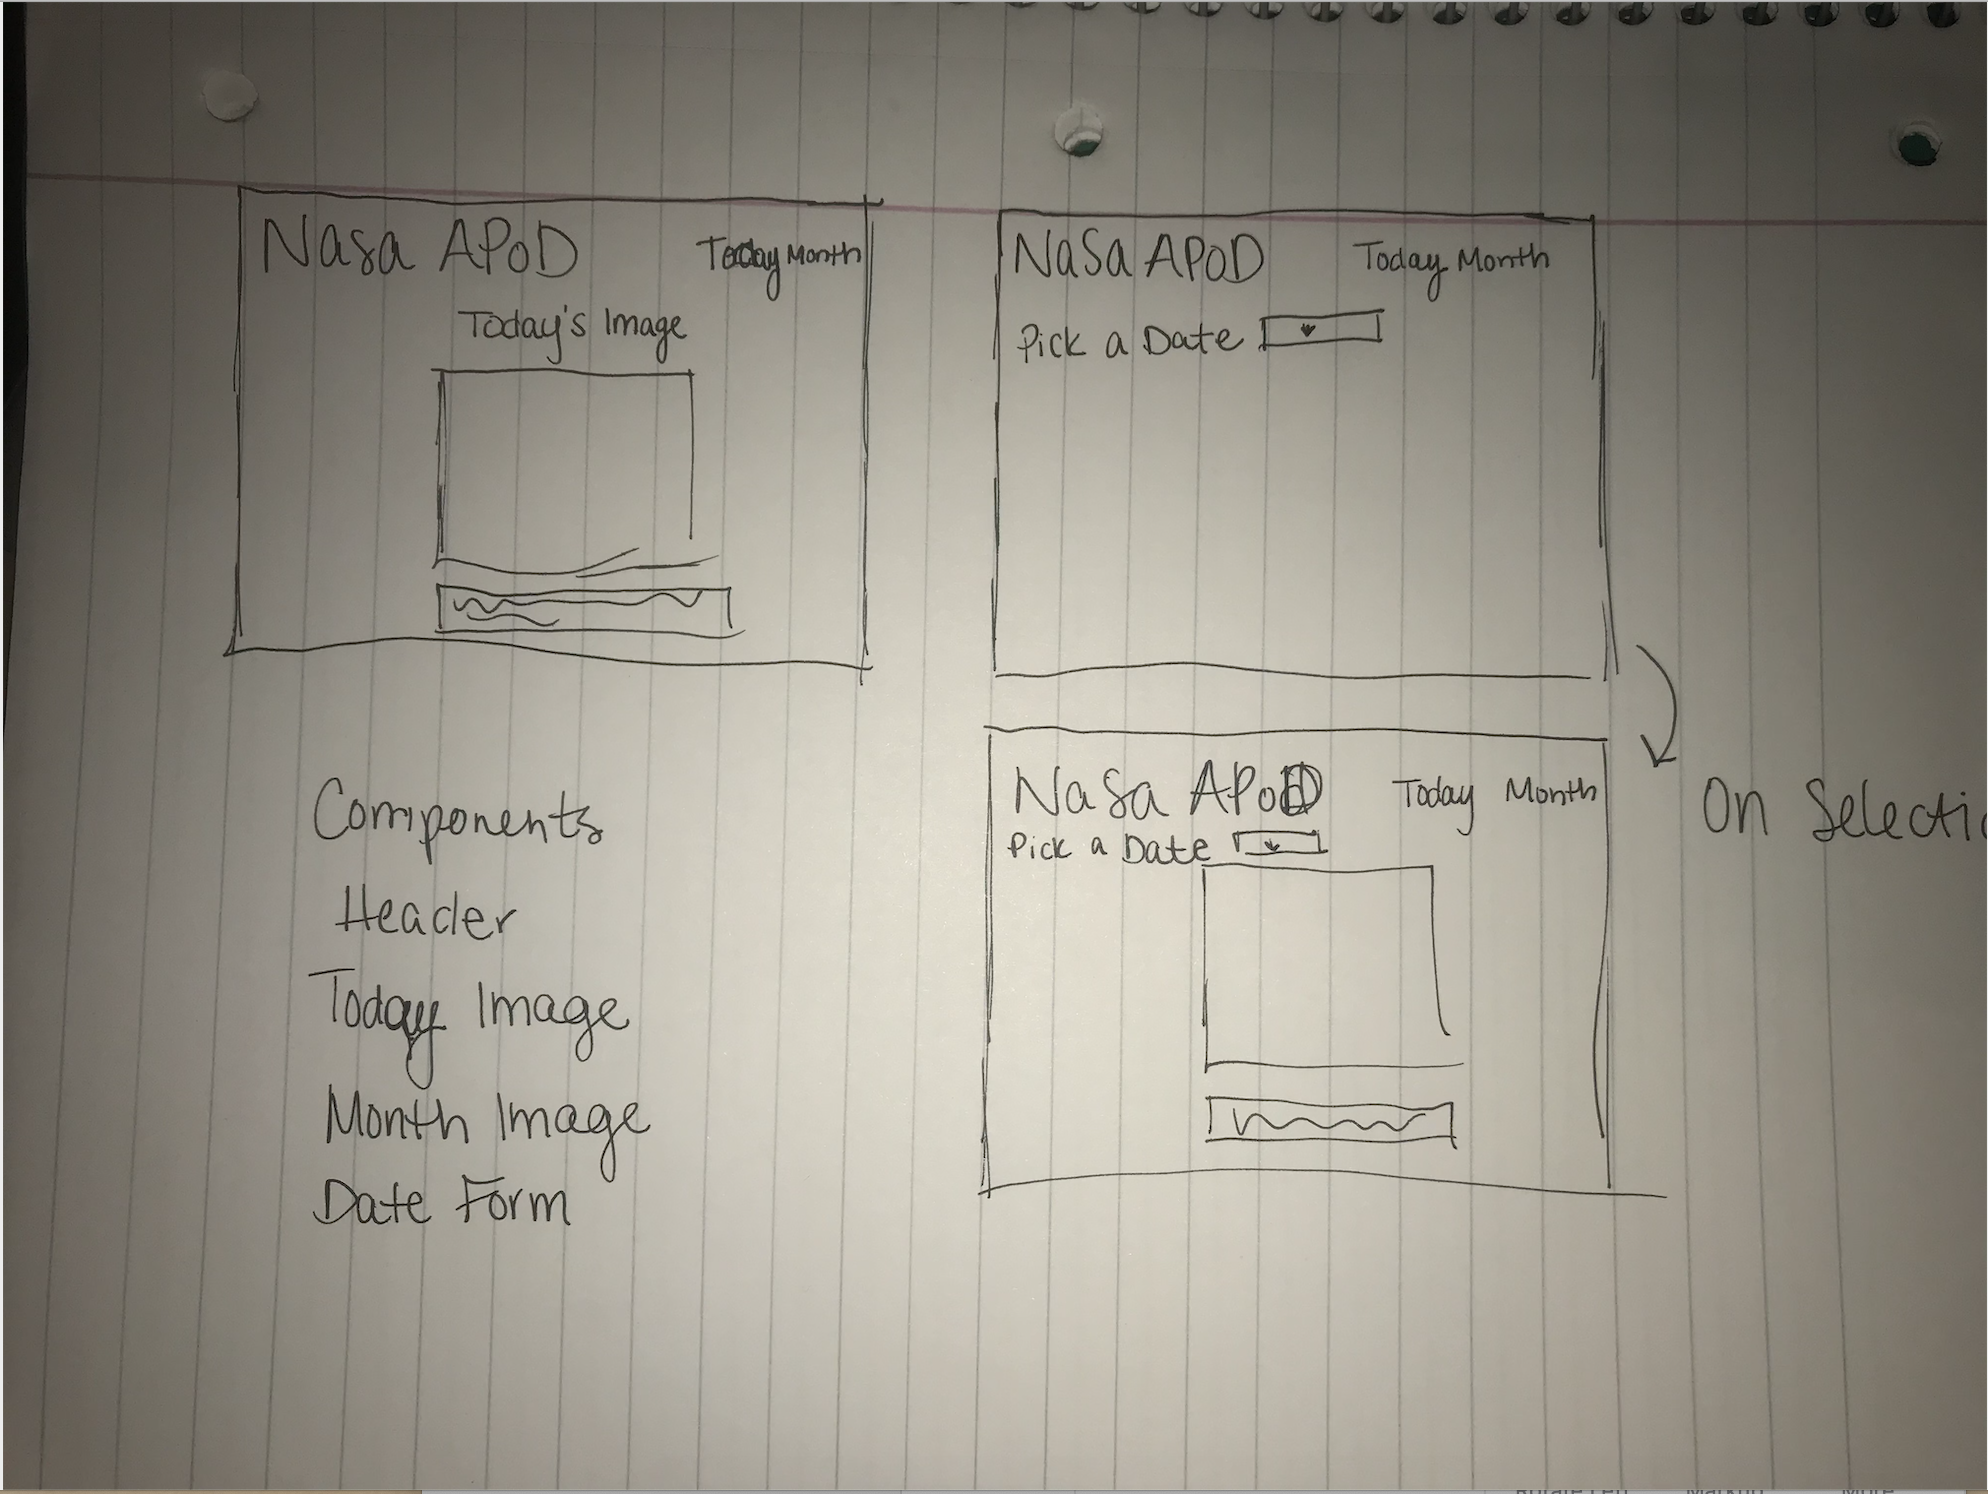 Nasa APoD Today Month
Today's Image
NaSa APoD Today Month
Pick a Date
NaSa APoD Today Month
Pick a Date
On Selectio
Components
Header
Today Image
Month Image
Date Form